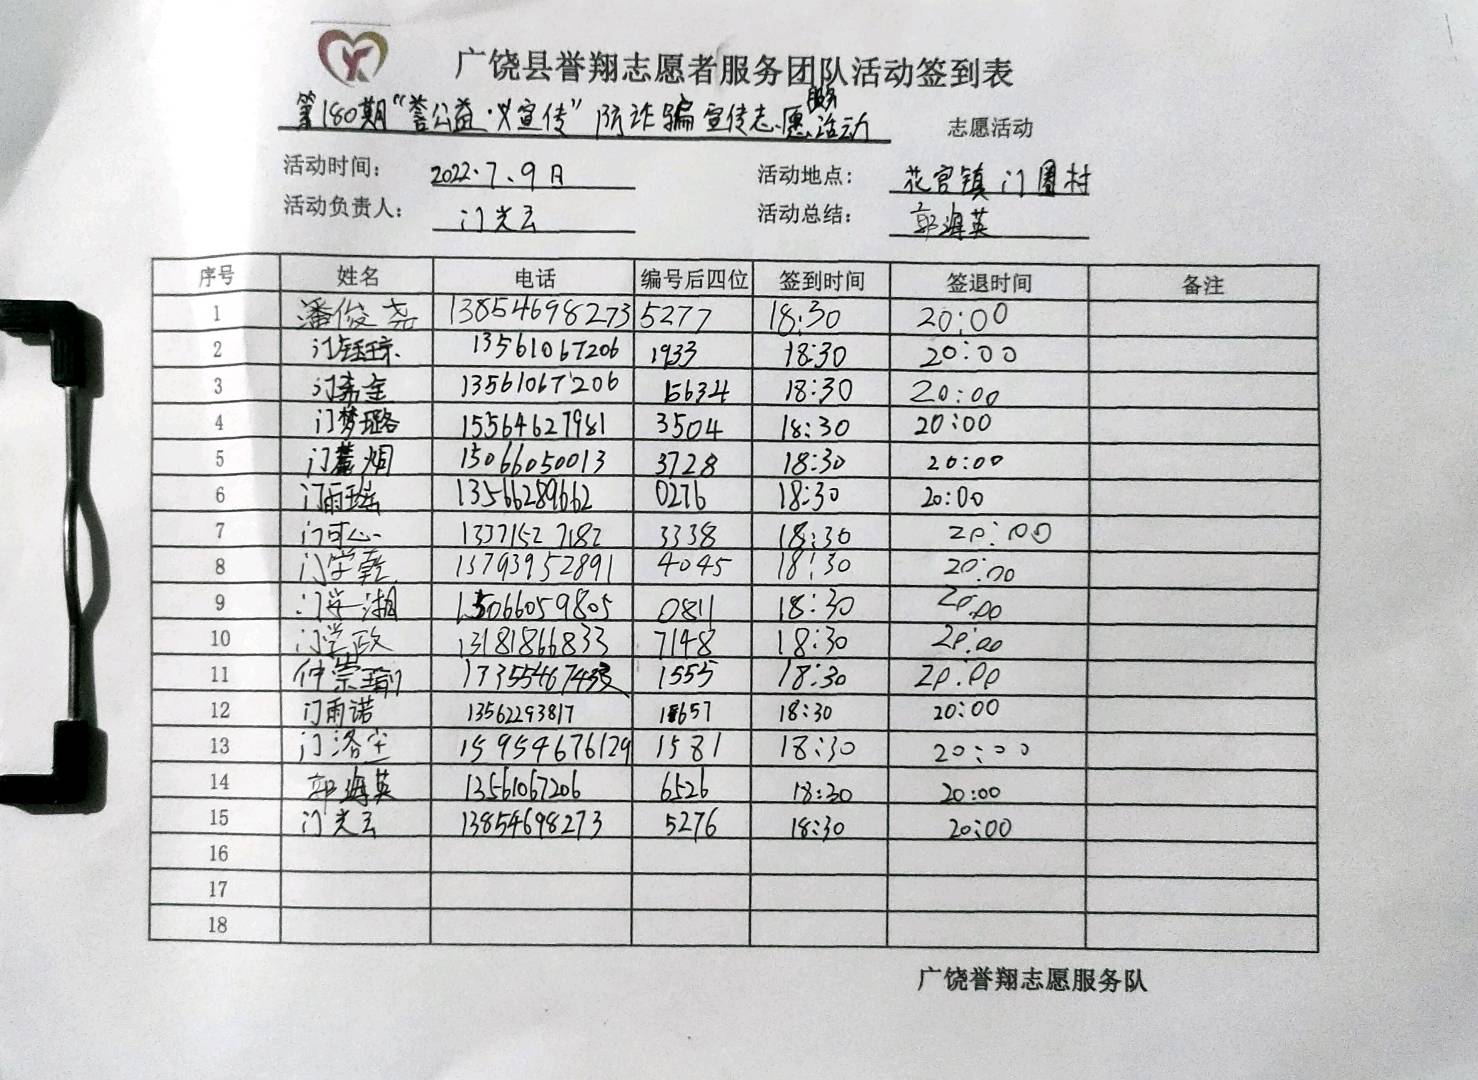 广饶县誉翔志愿者服务团队活动签到表
第180期“誉公益·义宣传”防诈骗宣传志愿服务活动 志愿活动
活动时间： 2022.7.9日 活动地点： 花官镇门圈村
活动负责人： 门光云 活动总结： 郭海英
序号 姓名 电话 编号后四位 签到时间 签退时间 备注
1 潘俊尧 13854698273 5277 18:30 20:00
2 门钰琼 13561067206 1933 18:30 20:00
3 13561067206 5634 18:30 20:00
4 门梦璐 15564627981 3504 18:30 20:00
5 15066050013 3728 18:30 20:00
6 门雨瑶 13566289662 0276 18:30 20:00
7 门可心 13371527182 3338 18:30 20:00
8 门学乾 13793952891 4045 18:30 20:00
9 门学湘 15066059805 0811 18:30 20:00
10 门学政 13181866833 7148 18:30 20:00
11 仲崇 1555 18:30 20:00
12 门雨诺 13562293817 1657 18:30 20:00
13 门洛尘 15954676129 1581 18:30 20:00
14 郭海英 13561067206 6526 18:30 20:00
15 门光云 13854698273 5276 18:30 20:00
16
17
18
广饶誉翔志愿服务队